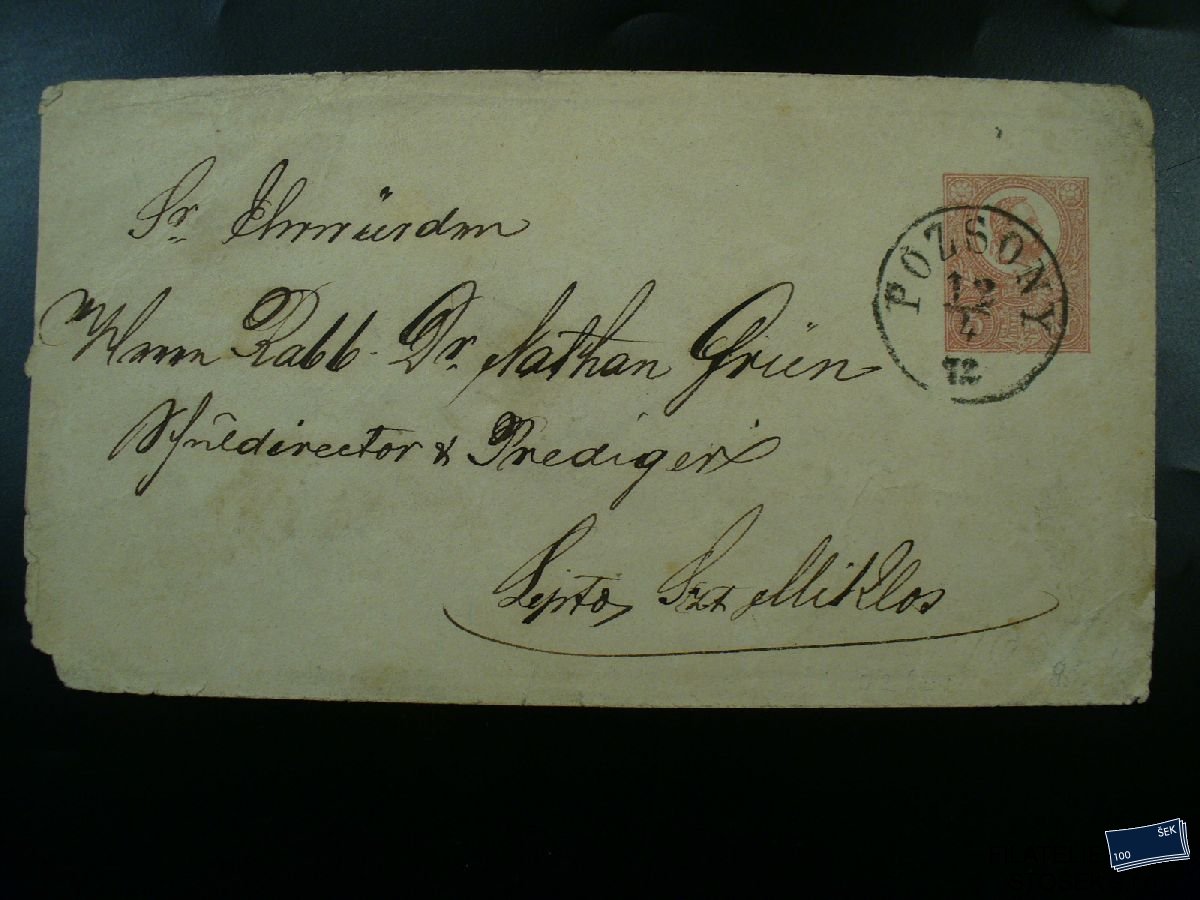 Sr Ehrwürden
POZSONY
12
4
72
Herrn Rabb. Dr. Nathan Grün
Schuldirector & Prediger
Lipto Szt Miklos
ŠEK
100